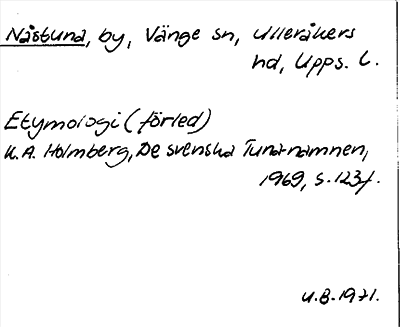 Nåstuna, by, Vänge sn, Ulleråkers
hd, Upps. l.
Etymologi (förled)
K.A. Holmberg, De svenska Tuna-namnen,
1969, s. 123f.
U.B. 1971.